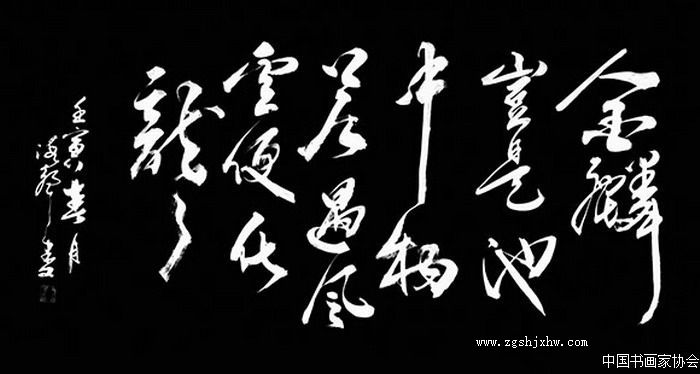 金麟
豈是池
中物
若遇风
雲便化
龍
壬寅春月
书
www.zgshjxhw.com
中国书画家协会